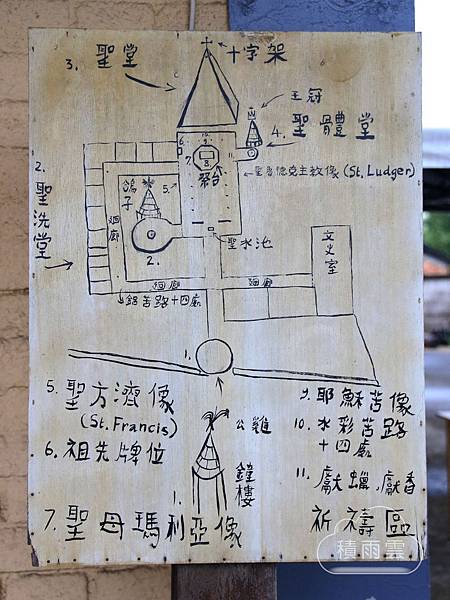 十字架
3. 聖堂
王冠
4. 聖體堂
10.
9.
6
7.
8
11.
祭台
聖魯德克主教像 (St. Ludger)
2. 聖洗堂
鴿子
5.
迴廊
2.
聖水池
文史室
迴廊
迴廊
銅苦路十四處
1.
5. 聖方濟像
(St. Francis)
6. 祖先牌位
7. 聖母瑪利亞像
公雞
1. 鐘樓
9. 耶穌苦像
10. 水彩苦路
十四處
11. 獻蠟,獻香
祈禱區
積雨雲